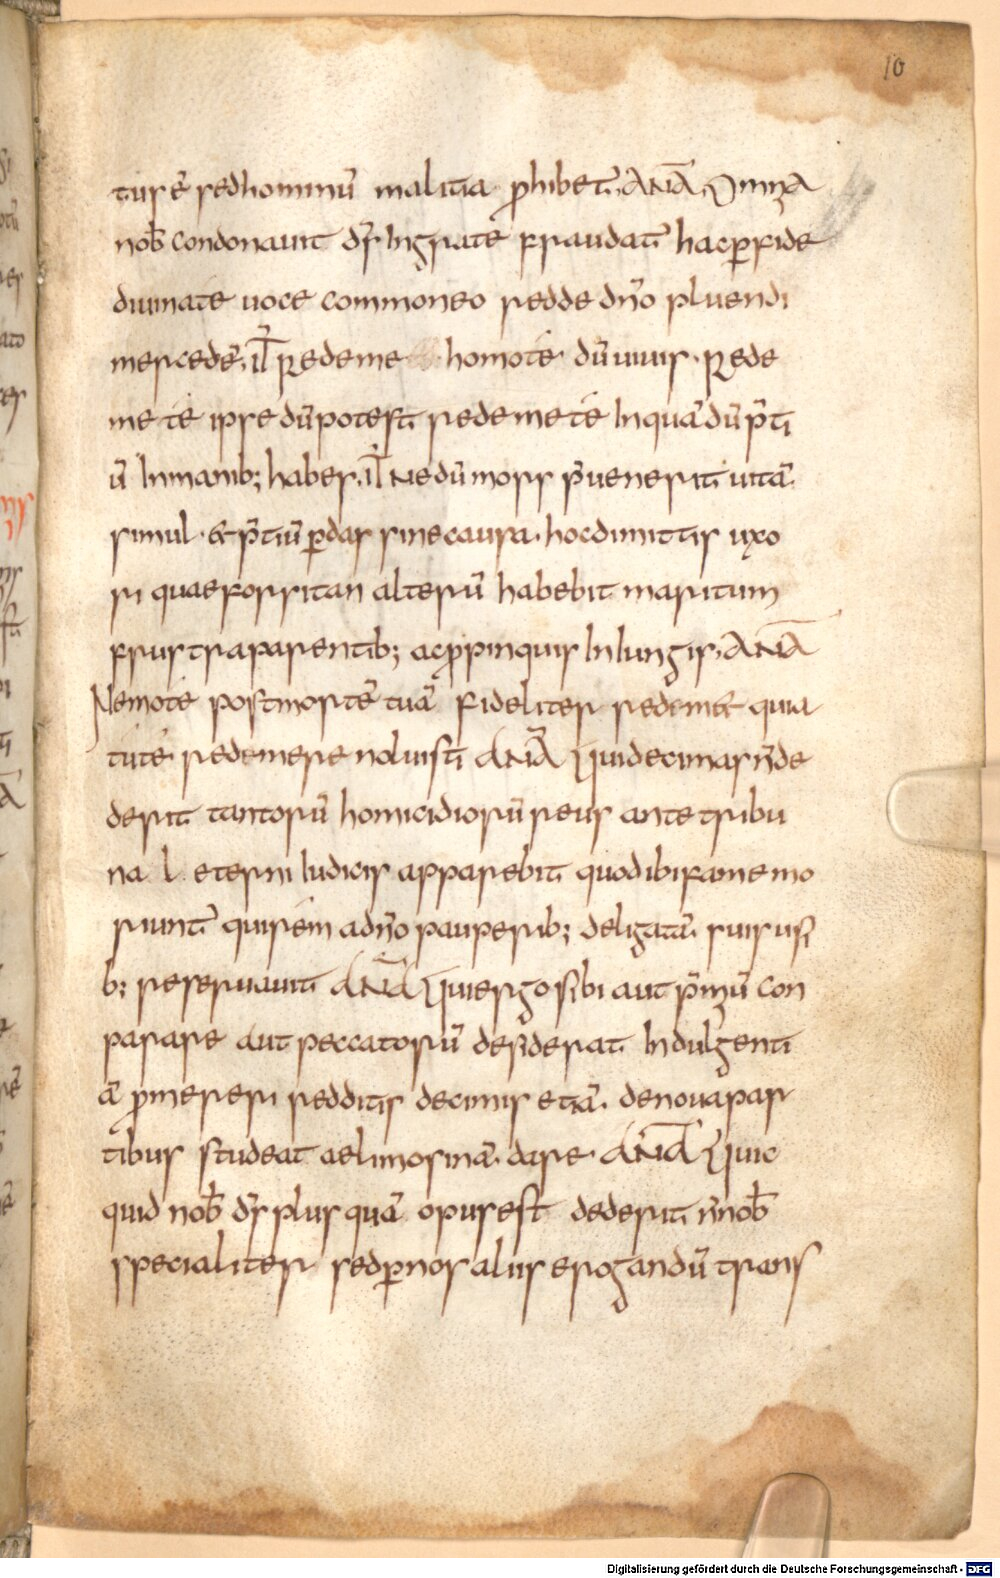 10
tus ē sed hominū malitia ꝓhibet̄ · ANĀ Om̄a
nob̄ condonauit dſ̄ Ingrate fraudat̄ hac ꝑfide
diuina te uoce commoneo redde dn̄o pluendi
mercedē · iT̄ Redeme homo te dū uiuis · Rede
me te ipse dū potest redeme te Inquā dū p̄ti
ū In manib; habes · iT̄ Ne dū mors p̄uenerit uitā
simul · & p̄tiū ꝑdas sine causa · hoc dimittis uxo
ri quae forsitan alterū habebit maritum
frustra parentib; ac ꝓpinquis In lungis · ANĀ
Nemo te post mortē tuā fideliter redem& quia
tu te redemere noluisti ANĀ Qui decimas n̄ de
derit tantorū homicidiorū reus ante tribu
na l eterni Iudicis apparebit quod ibi fame mo
riunt̄ qui rem a dn̄o pauperib; deligatā suis usi
b; reseruauit ANĀ Qui ergo sibi aut p̄miū con
parare aut peccatorū desiderat Indulgenti
ā ꝓmereri redditis decimis etiā · de noua par
tibus studeat aelimosinā dare · ANĀ Quic
quid nob̄ dſ̄ plus quā opus est dederit n̄ nob̄
specialiter sed ꝑ nos aliis erogandū trans
Digitalisierung gefördert durch die Deutsche Forschungsgemeinschaft - DFG